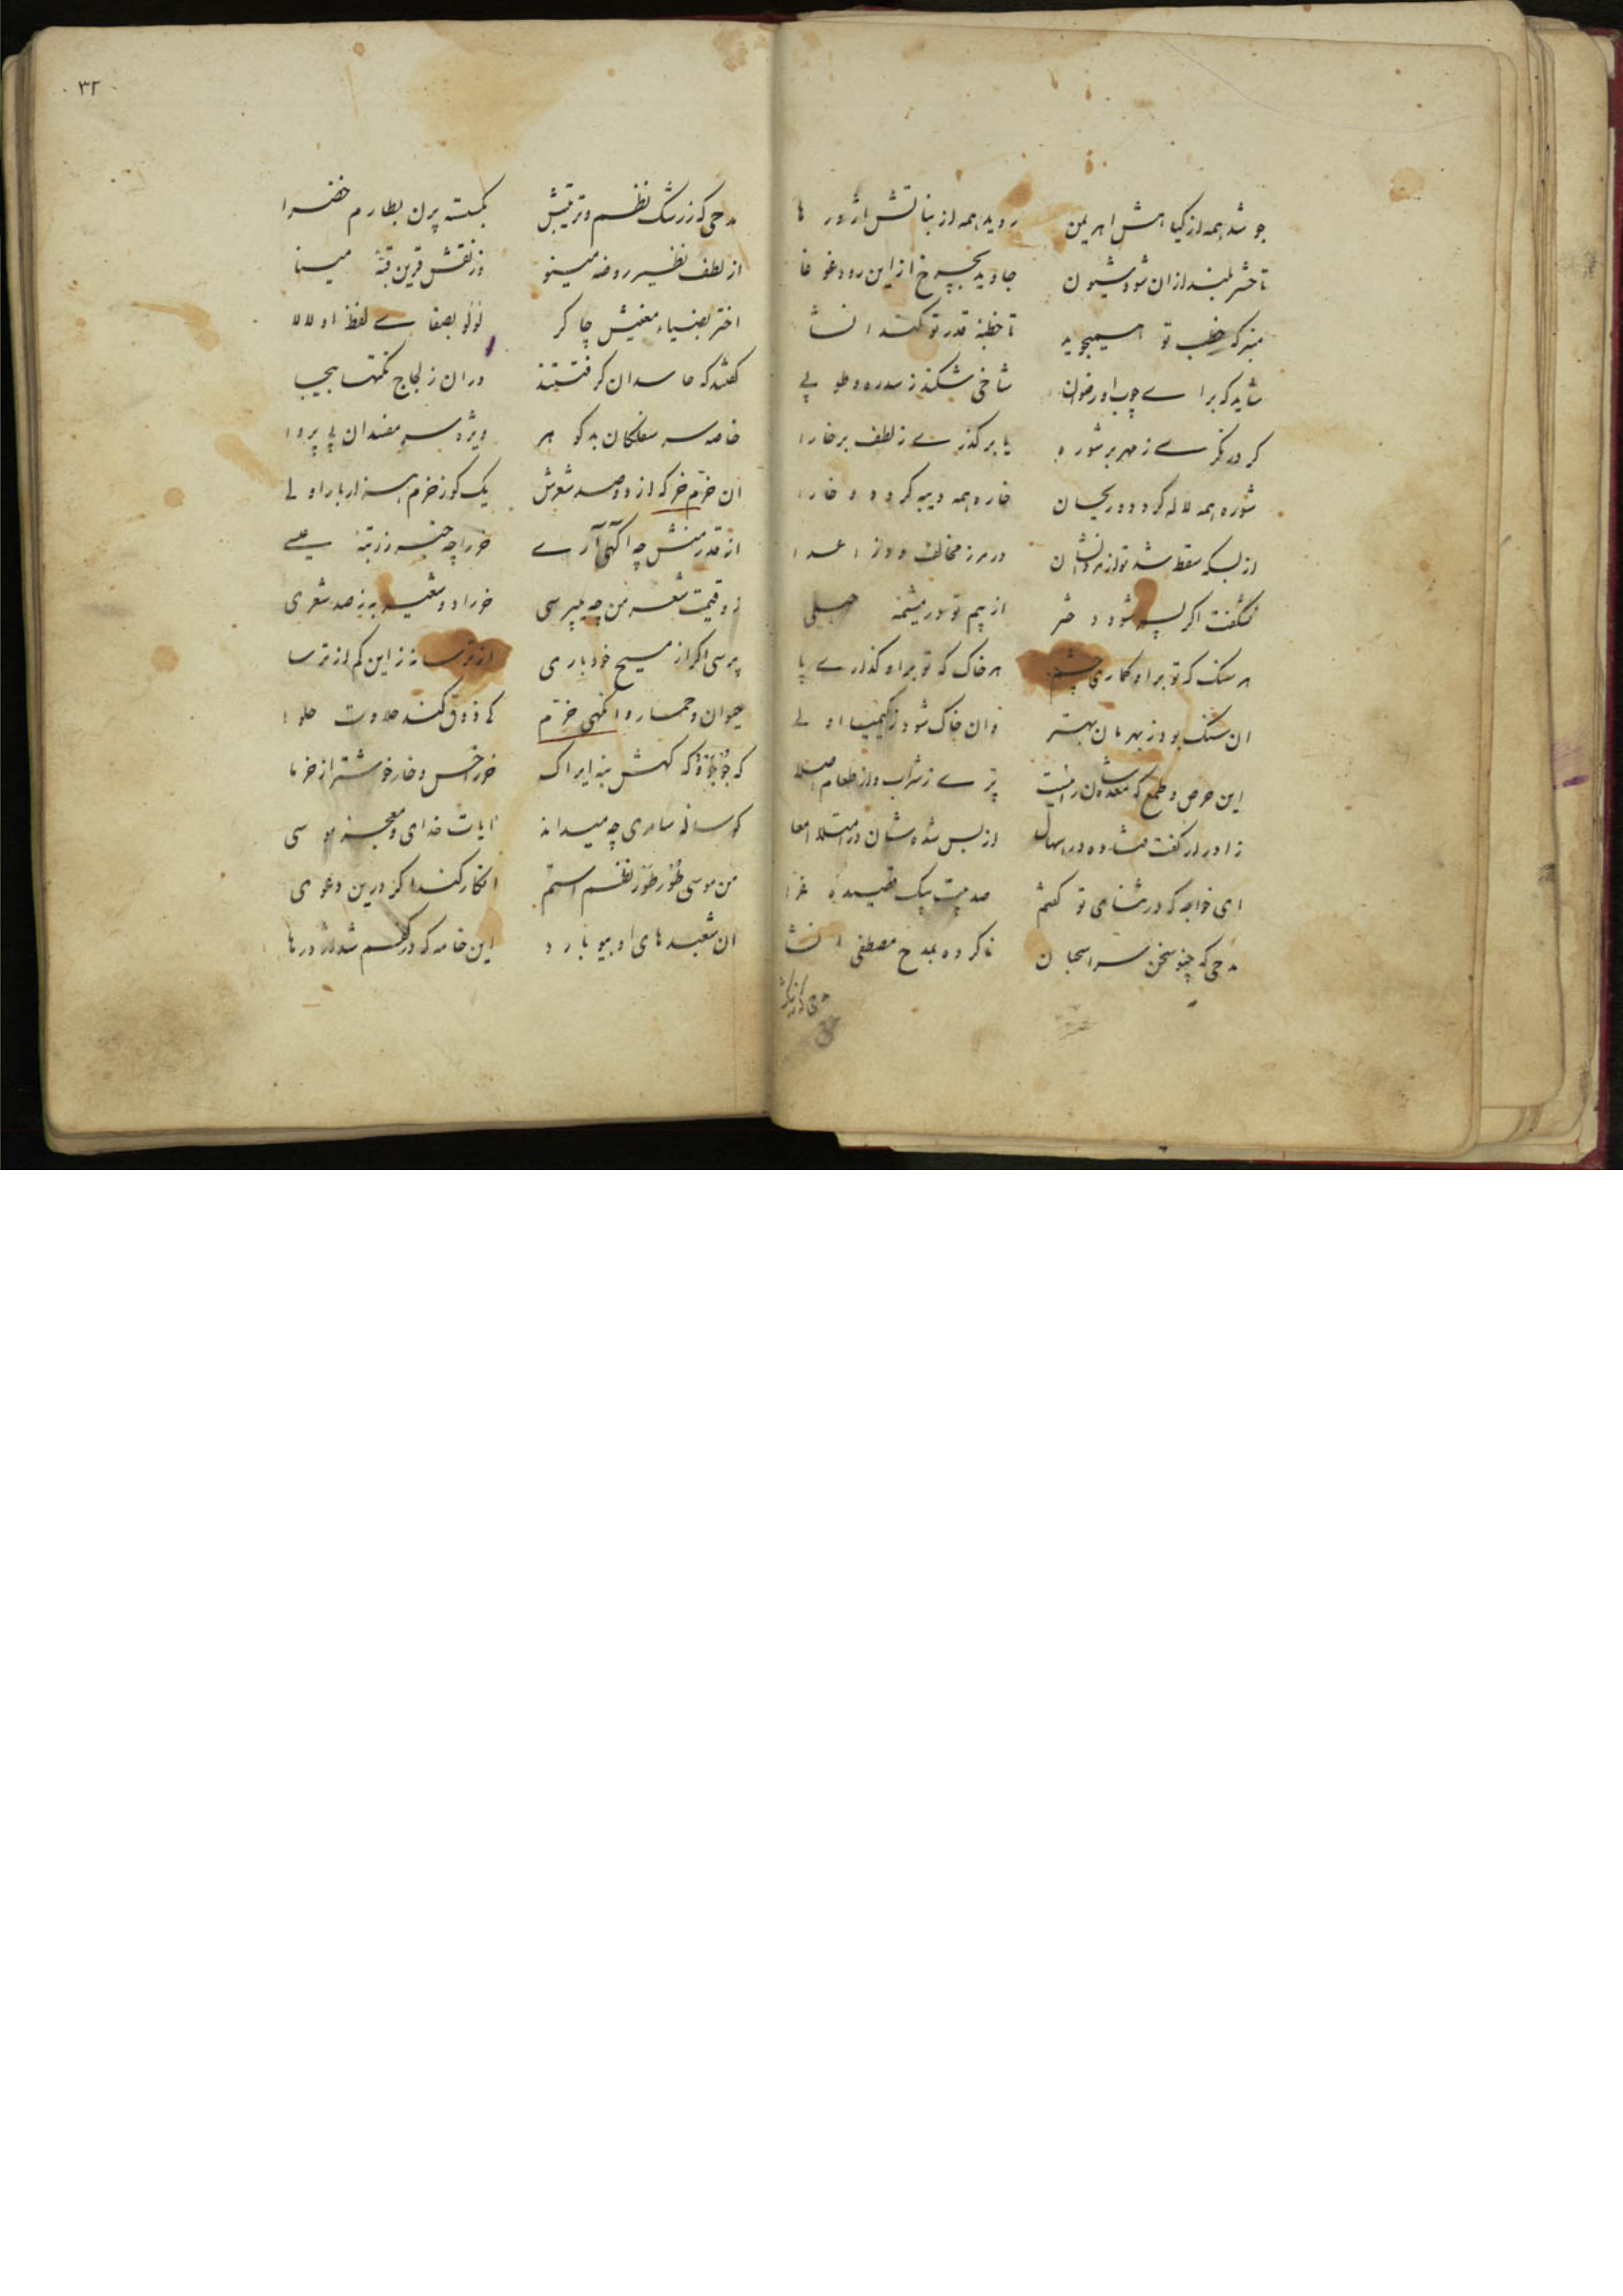 جوشد همه از کیاهش اهریمن روید همه از بناتش اژدرها
تا حشر بلند از آن شود شیون جاوید بچرخ از این رود غوغا
منبر که خطیب تو همیجوید تا خطبهٔ قدر تو کند انشا
شاید که برای چوب او رضوان شاخی شکند ز سدره و طوبی
کر در نکری ز مهر بر شوره یا بر کذری ز لطف بر خارا
شوره همه لاله کردد و ریحان خاره همه دیبه کردد و خارا
از بسکه سقط شد تو از مردانشان در مرز مخالف و در اعدا
نشکفت اکر پسر شود دختر از بیم تو در مشیمهٔ حبلی
هر سنک که تو بر او کماری چشم هر خاک که تو بر او کذاری پا
ان سنک بود ز بهرمان بهتر وان خاک شود ز کیمیا اولی
این حرص و طمع که معده شان راست پری ز شراب و از طعام اصلا
زادرار کفت فتاده در اسهال از بس شده شان در امتلا امعا
ای خواجه که در ثنای تو کفتم صد بیت بیک قصیدهٔ غرا
مدحی که چنو سخن سرا سحبان ناکرده بمدح مصطفی انشا
مدحی که ز رشک نظم و ترتیبش بکسسته پرن بطارم خضرا
از لطف نظیر روضه مینو وز نقش قرین قبهٔ مینا
اختر بضیاء معنیش چاکر لولو بصفای لفظ او لالا
کفتند که حاسدان کرفتستند در ان ز لجاج نکتها بیجا
خاصه سر سفلکان بد کوهر ویژه سر مفسدان بی پروا
ان خرم خر که از دو صد شعرش یک کوز خرم هزار بار اولی
از قدر منش چه اکهی آری خر را چه خبر ز رتبهٔ عیسی
زو قیمت شعر من چه میپرسی خر را دو شعیر به ز صد شعری
پرسی اکر از مسیح خود باری از ترسا نه ز این کم از ترسا
حیوان و حمار وانکهی خرم کی ذوق کند حلاوت حلوا
که جو جوٗ و که کهش بنه ایراک خر را خس و خار خوشتر از خرما
کوساله سامری چه میداند ایات خدای و معجز موسی
من موسی طور طور نظم استم انکار کند اکر درین دعوی
ان شعبدهای او بیوبارد این خامه که در کفم شد اژدرها